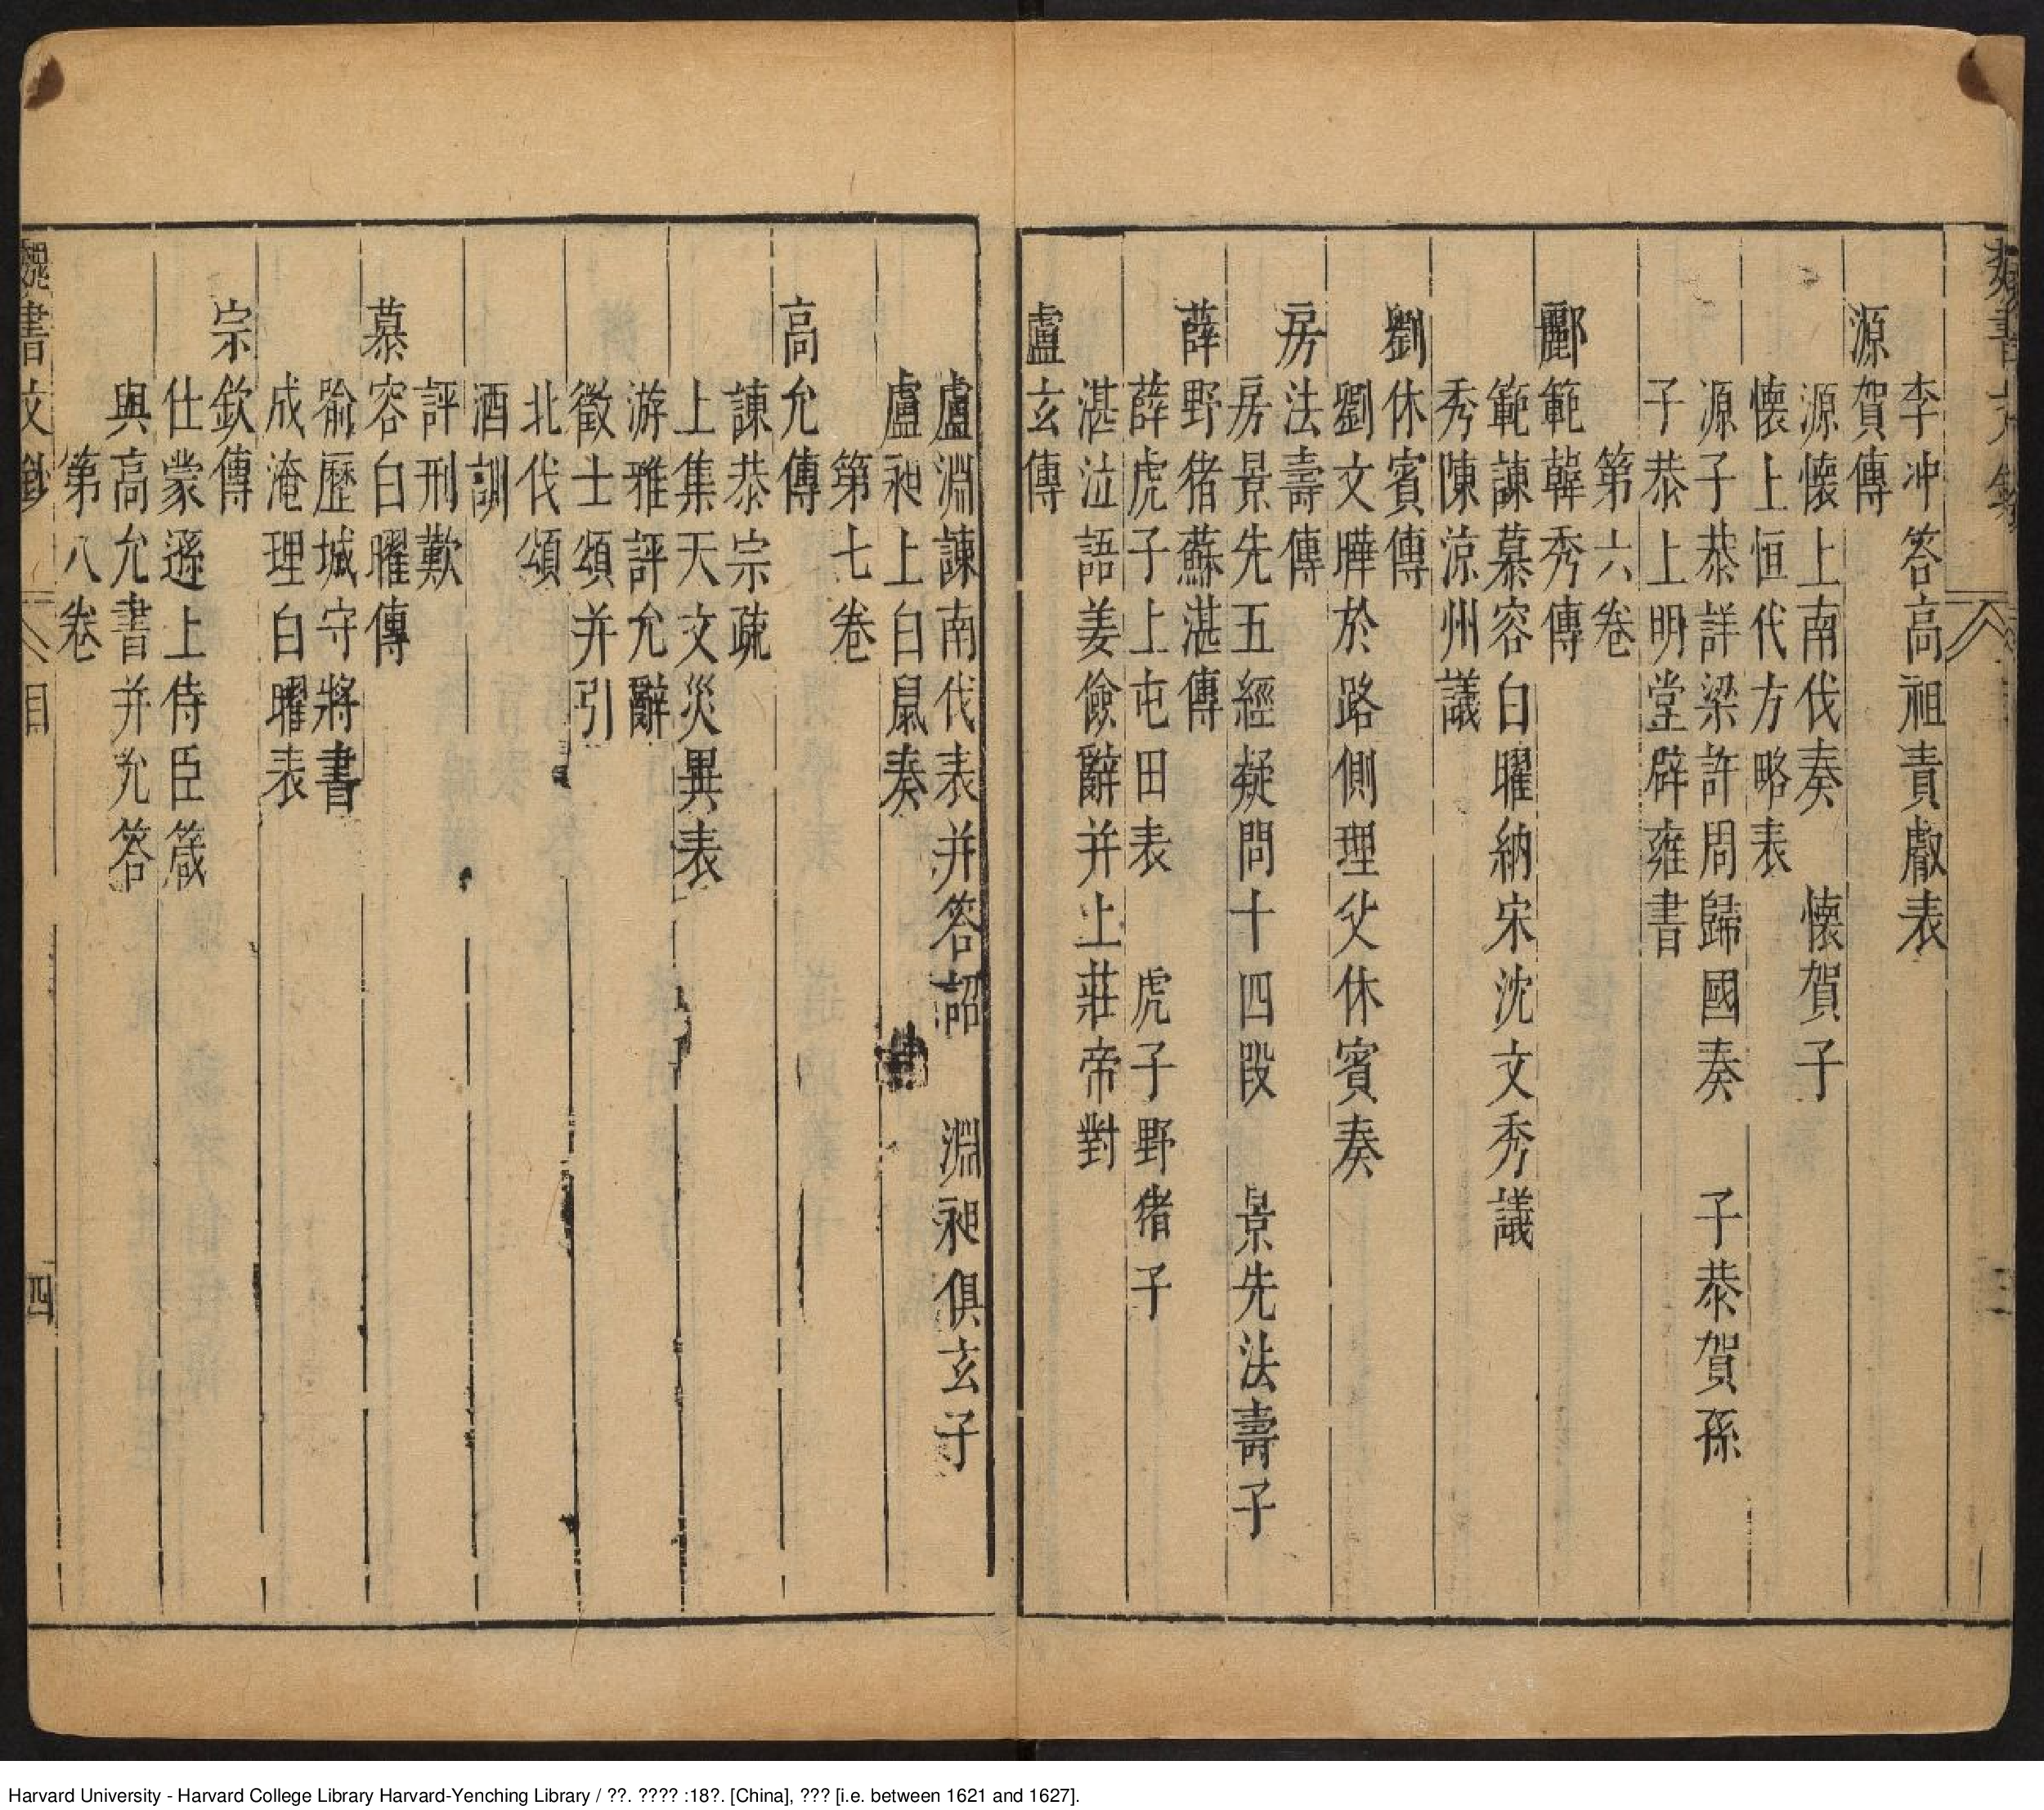 李冲答高祖責䖍表
源賀傳
源懷上南伐奏　懷賀子
懷上恒代方略表
源子恭詳梁許周歸國奏　子恭賀孫
子恭上明堂辟雍書
第六卷
酈範韓秀傳
範諫慕容白曜納宋沈文秀議
秀陳涼州議
劉休賓傳
劉文曄於路側理父休賓奏
房法壽傳
房景先五經疑問十四段　景先法壽子
薛野猪蘇湛傳
薛虎子上屯田表　虎子野猪子
湛泣語姜儉辭并上莊帝對
盧玄傳
盧淵諫南伐表并答詔　淵昶俱玄子
盧昶上白鼠奏
第七卷
高允傳
諫恭宗疏
上集天文災異表
游雅評允辭
徵士頌并引
北伐頌
酒訓
評刑歎
慕容白曜傳
喻歷城守將書
成淹理白曜表
宗欽傳
仕蒙遜上侍臣箴
與高允書并允答
第八卷
魏書文鈔　目　四
Harvard University - Harvard College Library Harvard-Yenching Library / ??. ???? :18?. [China], ??? [i.e. between 1621 and 1627].